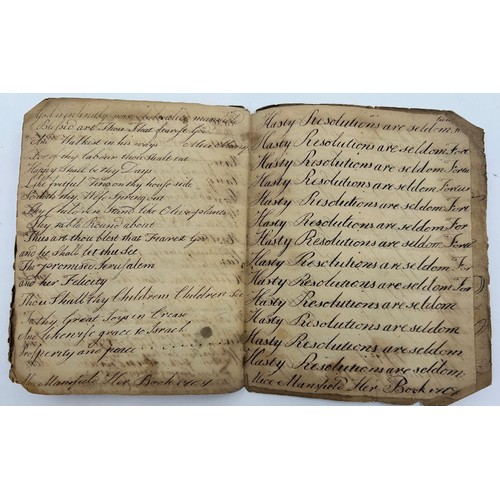 Blessed art Thou That fearest God
And Walkest in his ways
For of thy labour thou shalt eat
Happy Shall be thy Days
Like fruitful Vines on thy house side
So doth thy Wife Spring out
Thy Children Stand like Olive plants
Thy table Round about
Thus art thou blest that Fearest God
and he Shall let thee See
The promised Jerusalem
and her Felicity
Thou Shall thy Childrens Children See
To thy Great Joys in Crease
And likewise grace to Israel
Prosperity and peace
Mansfield Her Book
Hasty Resolutions are seldom For
Hasty Resolutions are seldom Fortu
Hasty Resolutions are seldom Fortu
Hasty Resolutions are seldom Fortun
Hasty Resolutions are seldom Fort
Hasty Resolutions are seldom Fort
Hasty Resolutions are seldom Fortu
Hasty Resolutions are seldom For
Hasty Resolutions are seldom For
Hasty Resolutions are seldom
Hasty Resolutions are seldom
Hasty Resolutions are seldom
Hasty Resolutions are seldom
Alice Mansfield Her Book